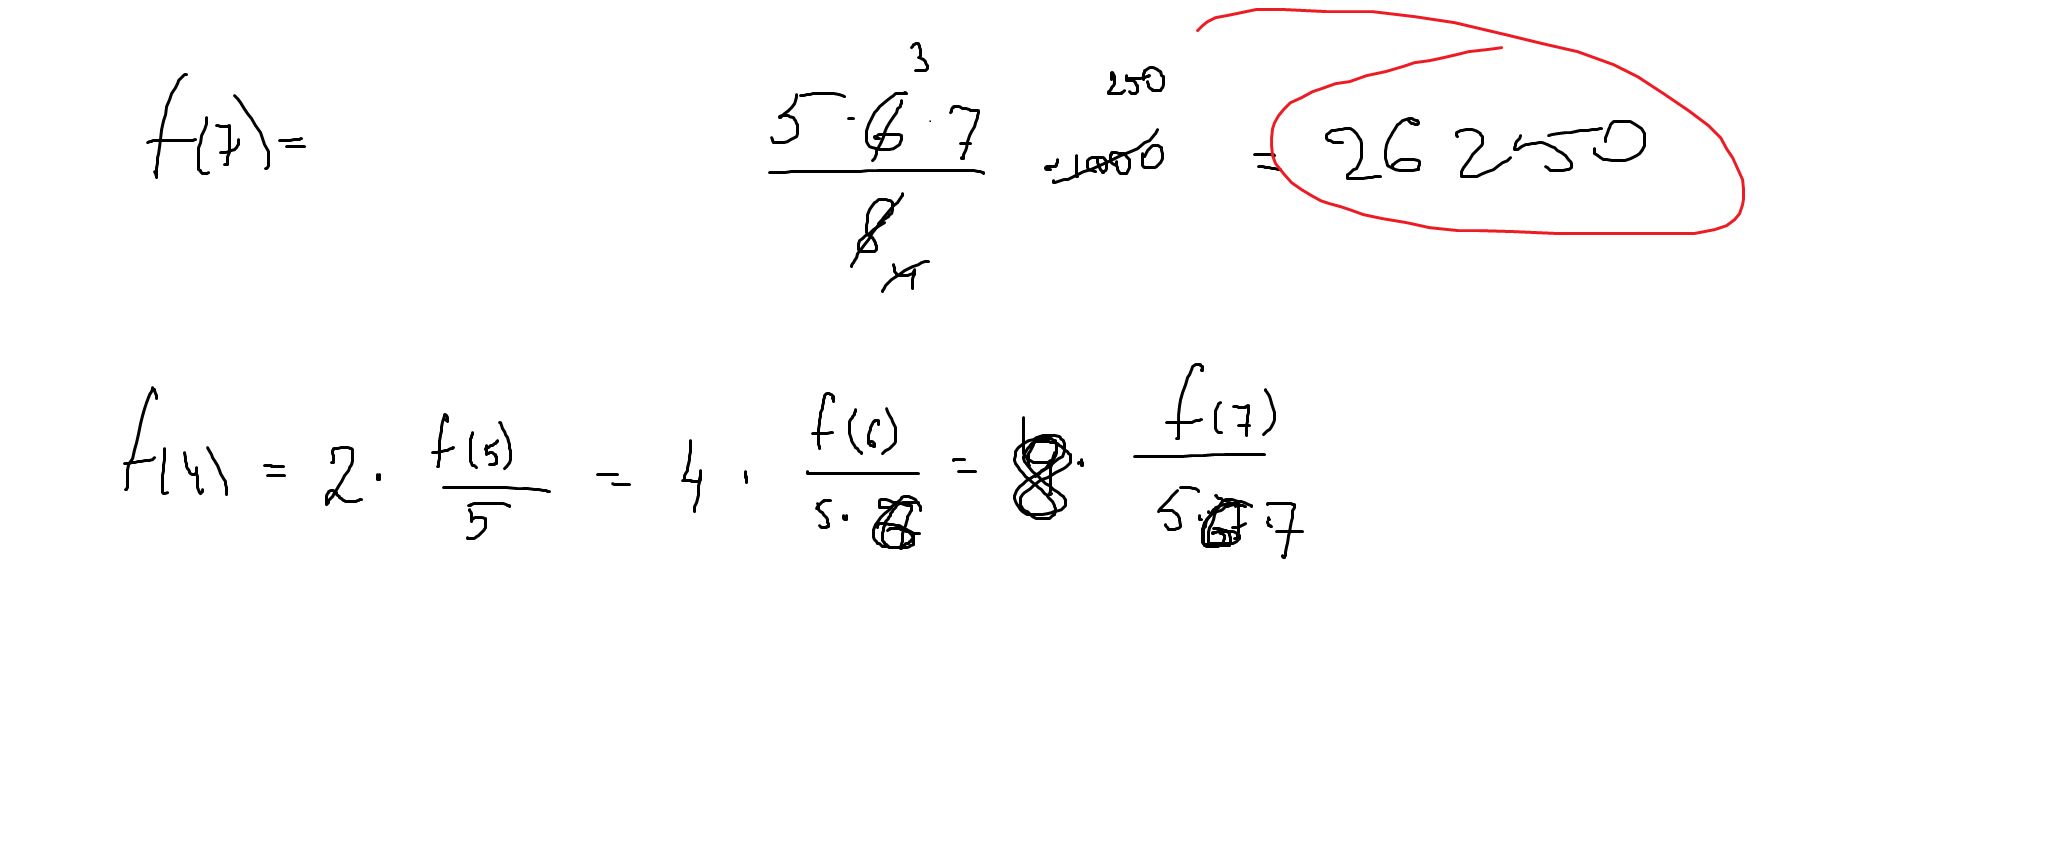 f(7) = 5·6·7/8 3 4 ·1000 250 = 26250
f(4) = 2 · f(5)/5 = 4 · f(6)/5·6 = 8 · f(7)/5·6·7